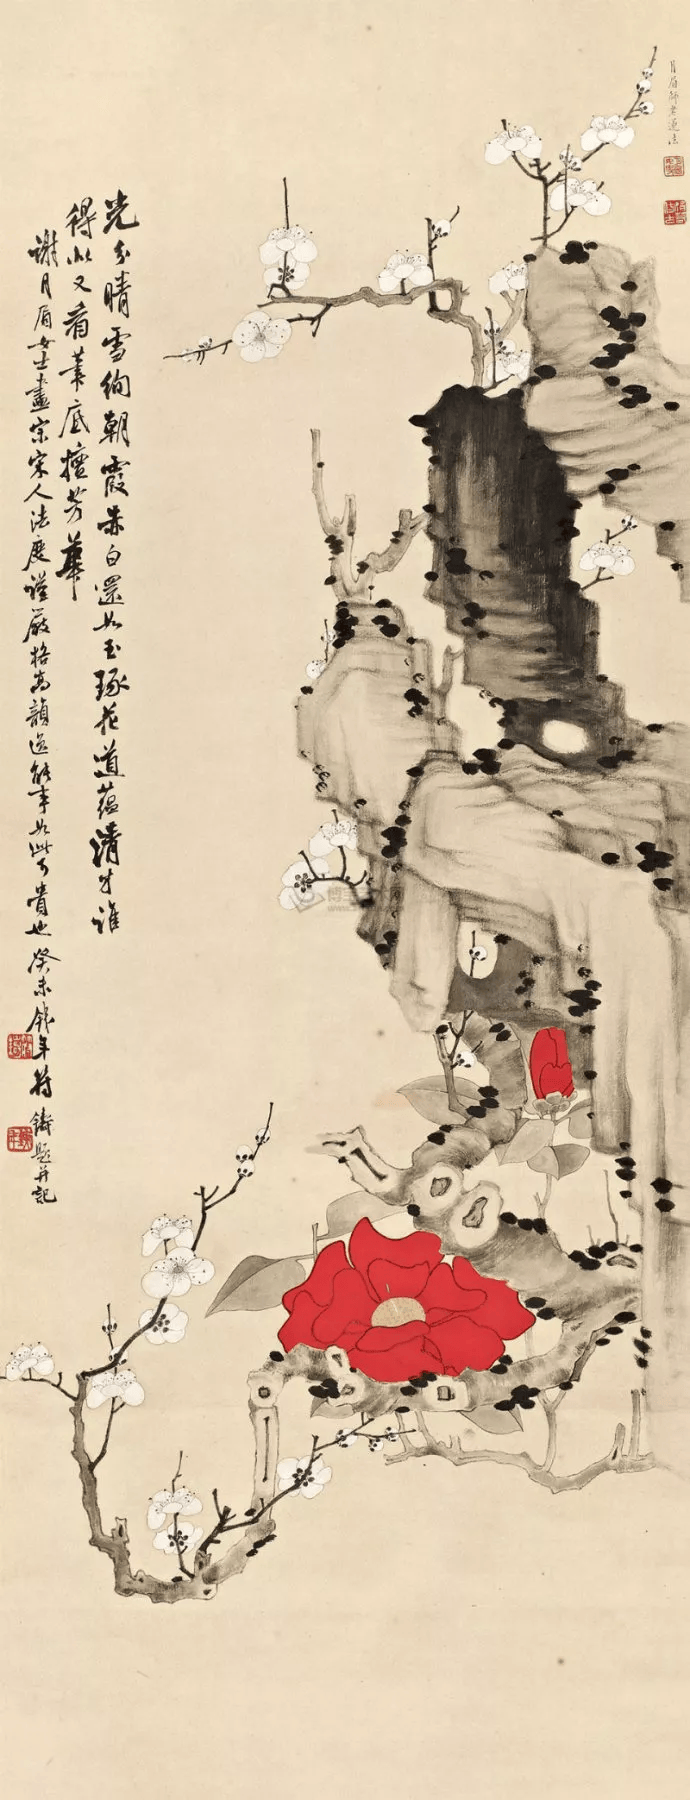 月眉師老蓮法
光分晴雪絢朝霞赤白還如玉琢花道蘊清才誰
得似又看筆底擅芳華
謝月眉女士畫宗宋人法度謹嚴格高韻逸能事如此可貴也癸未錢年符鑄題并記